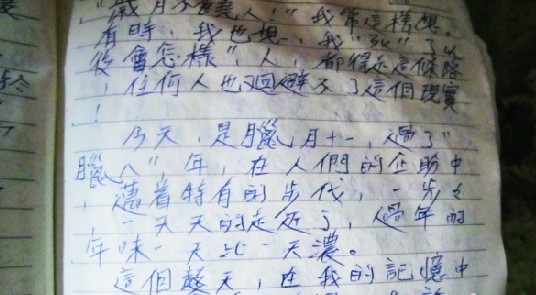 "歲月不饒人!"我常這樣想。
有時,我也想,我"死"了以
後會怎樣",人,都得走這條路
,任何人也迴避不了這個現實
!
今天,是臘月十一,過了"
臘八",年,在人們的企盼中
,邁着特有的步代,一步々
,一天天的走近了,過年的
年味一天比一天濃。
這個天,在我的記憶中